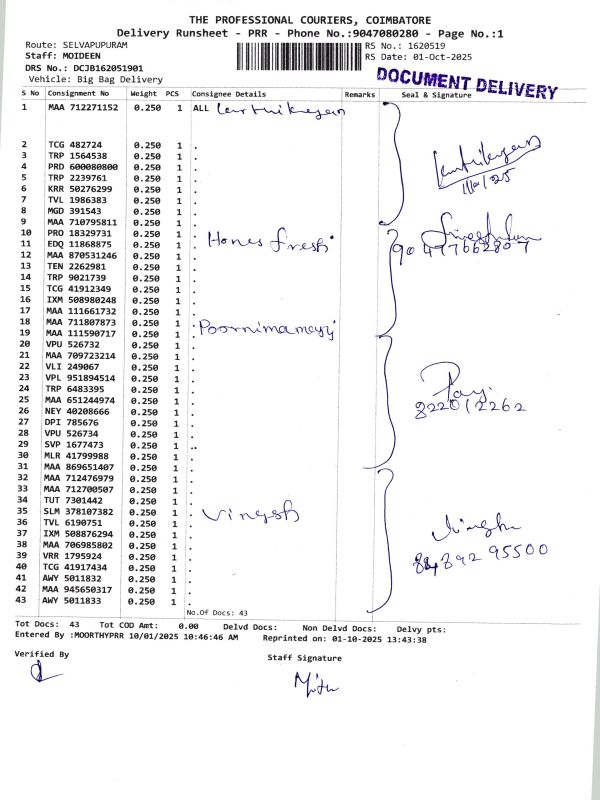 THE PROFESSIONAL COURIERS, COIMBATORE
Delivery Runsheet - PRR - Phone No.:9047080280 - Page No.:1
Route: SELVAPUPURAM RS No.: 1620519
Staff: MOIDEEN RS Date: 01-Oct-2025
DRS No.: DCJB162051901
Vehicle: Big Bag Delivery
DOCUMENT DELIVERY
S No Consignment No Weight PCS Consignee Details Remarks Seal & Signature
1 MAA 712271152 0.250 1 ALL Karthikeyan
2 TCG 482724 0.250 1 .
3 TRP 1564538 0.250 1 .
4 PRD 600080800 0.250 1 .
5 TRP 2239761 0.250 1 .
6 KRR 50276299 0.250 1 .
7 TVL 1986383 0.250 1 .
8 MGD 391543 0.250 1 .
9 MAA 710795811 0.250 1 .
10 PRO 18329731 0.250 1 . Hones fresh 90477662807
11 EDQ 11868875 0.250 1 .
12 MAA 870531246 0.250 1 .
13 TEN 2262981 0.250 1 .
14 TRP 9021739 0.250 1 .
15 TCG 41912349 0.250 1 .
16 IXM 508980248 0.250 1 .
17 MAA 111661732 0.250 1 .
18 MAA 711807873 0.250 1 .
19 MAA 111590717 0.250 1 . Poornima
20 VPU 526732 0.250 1 .
21 MAA 709723214 0.250 1 .
22 VLI 249067 0.250 1 .
23 VPL 951894514 0.250 1 .
24 TRP 6483395 0.250 1 .
25 MAA 651244974 0.250 1 .
26 NEY 40208666 0.250 1 . 822012262
27 DPI 785676 0.250 1 .
28 VPU 526734 0.250 1 .
29 SVP 1677473 0.250 1 ..
30 MLR 41799988 0.250 1 .
31 MAA 869651407 0.250 1 .
32 MAA 712476979 0.250 1 .
33 MAA 712700507 0.250 1 .
34 TUT 7301442 0.250 1 .
35 SLM 378107382 0.250 1 . Vingesh
36 TVL 6190751 0.250 1 .
37 IXM 508876294 0.250 1 .
38 MAA 706985802 0.250 1 .
39 VRR 1795924 0.250 1 . 95500
40 TCG 41917434 0.250 1 .
41 AWY 5011832 0.250 1 .
42 MAA 945650317 0.250 1 .
43 AWY 5011833 0.250 1 .
No.Of Docs: 43
Tot Docs: 43 Tot COD Amt: 0.00 Delvd Docs: Non Delvd Docs: Delvy pts:
Entered By :MOORTHYPRR 10/01/2025 10:46:46 AM Reprinted on: 01-10-2025 13:43:38
Verified By Staff Signature